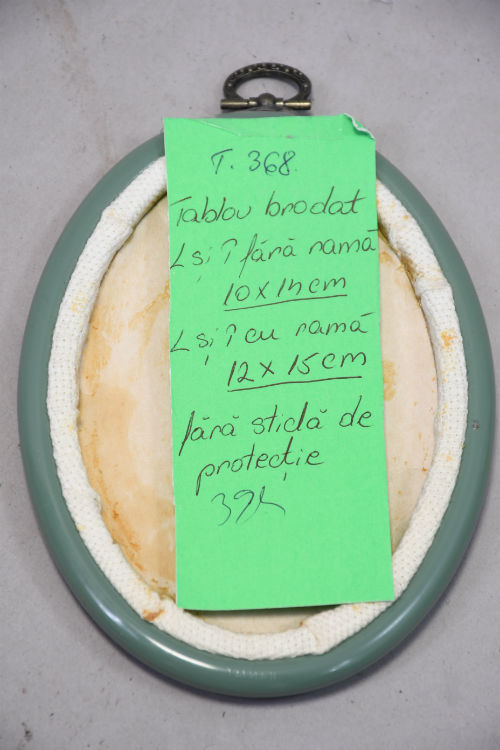 T. 368.
Tablou brodat
L și Î fără ramă
10 x 14 cm
L și Î cu ramă
12 x 15 cm
fără sticlă de
protecție